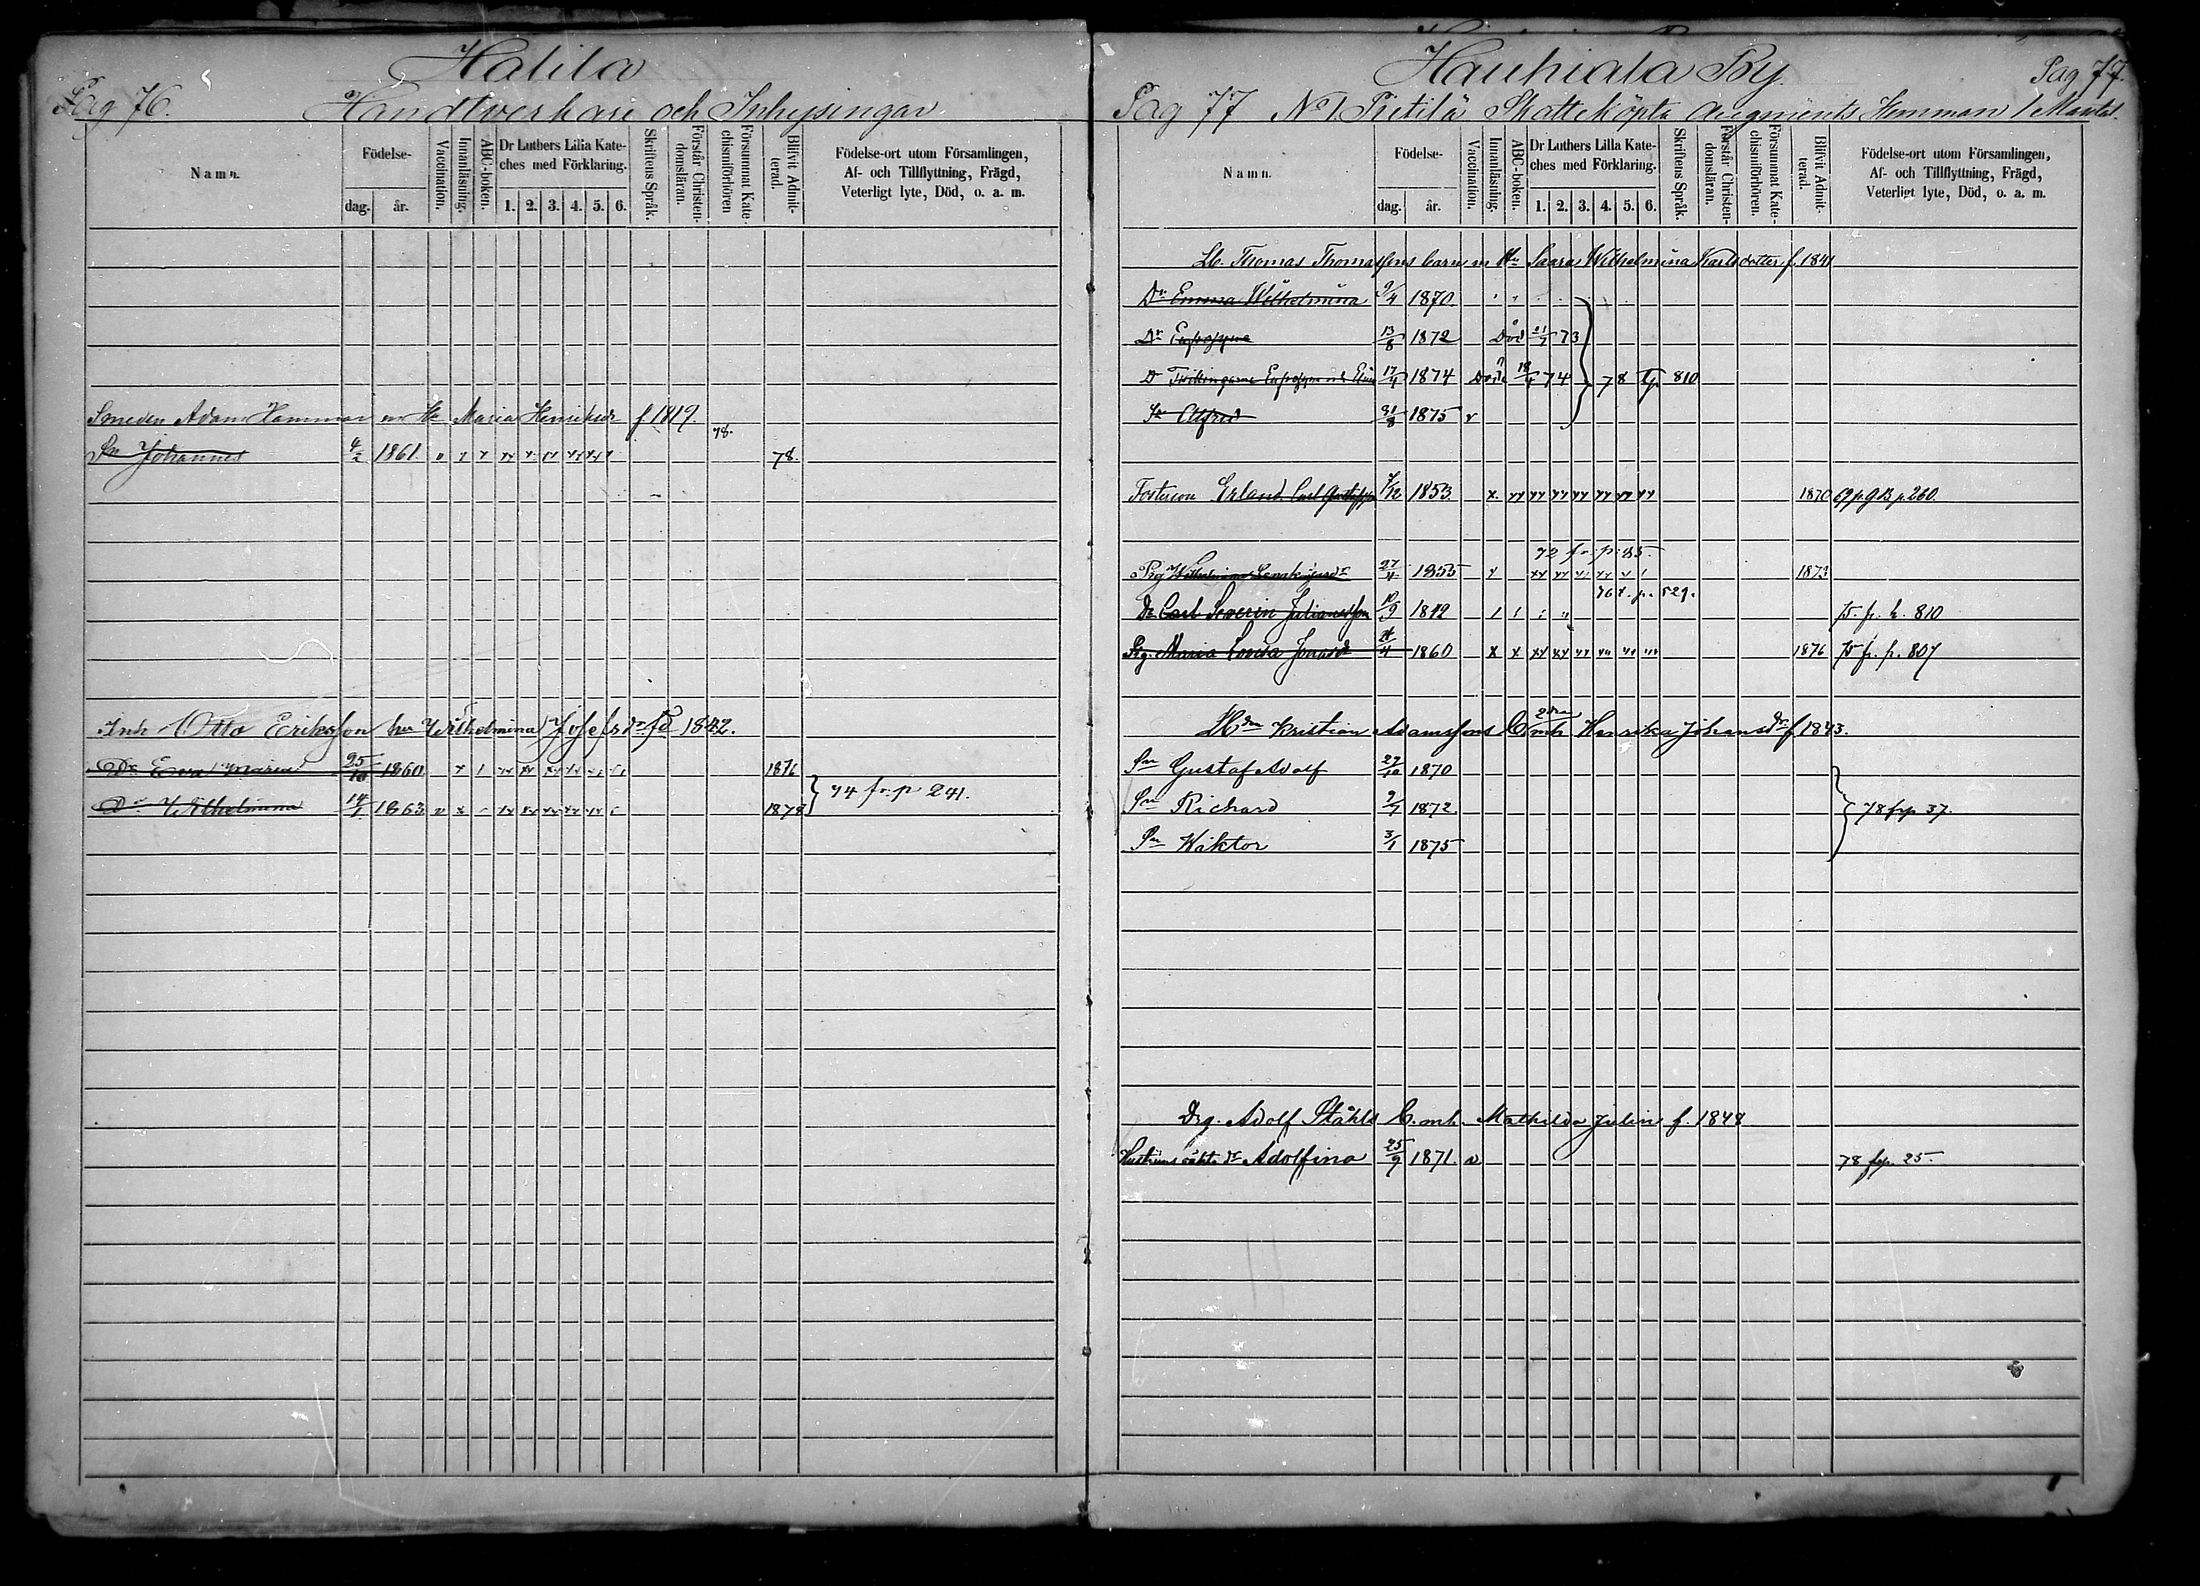 Halila
Pag 76. Handtverkare och Inhysingar
Namn. Födelse- dag. år. Vaccination. Innanläsning. ABC-boken. Dr Luthers Lilla Kateches med Förklaring. 1. 2. 3. 4. 5. 6. Skriftens Språk. Förstår Christendomsläran. Försummat Katechismiförhören Blifvit Admitterad. Födelse-ort utom Församlingen, Af- och Tillflyttning, Frägd, Veterligt lyte, Död, o. a. m.
Smeden Adam Hammar m H. Maria Henriksdr f 1819. 78.
Sn Johannes 4/2 1861. 78.
Inh Otto Eriksson hu Wilhelmina Josefsdr fd 1842.
Dr Eva Maria 25/10 1860 1876
Dr Wilhelmina 14/7 1863 1878 74 fr. p 241.
Hauhiala By. Pag 77.
Pag 77 No 1 Pietilä Skatteköpta Augments Hemman 1 Mantal.
Namn. Födelse- dag. år. Vaccination. Innanläsning. ABC-boken. Dr Luthers Lilla Kateches med Förklaring. 1. 2. 3. 4. 5. 6. Skriftens Språk. Förstår Christendomsläran. Försummat Katechismiförhören. Blifvit Admitterad. Födelse-ort utom Församlingen, Af- och Tillflyttning, Frägd, Veterligt lyte, Död, o. a. m.
Thomas Thomassons barn m Hu Saara Wilhelmina Karlsdotter f 1841
Dr Emma Wilhelmina 9/4 1870.
Dr Eufrosyne 13/8 1872 Död 21/7 73
D Tvillingarne Eufrosyne och 17/4 1874 Döde 18/4 74 78 810
Sn Alfred 31/8 1875 v
Fosterson Erland Carl Gustafsson 1853 1870 p. 260.
72 fr. p. 85.
Pig Wilhelmina 27/4 1855 1873
76 t. p. 529.
Dr Carl Severin Julianesson 10/9 1849 75. fr. p. 810
Pig. Maria Lovisa Jonasdr 1860 1876 75 fr. p. 807
Kristian Adamssons B. m 2dra h. Henrika Johansdr f 1843.
Sn Gustaf Adolf 27/10 1870
Sn Richard 9/7 1872. 78 frp 37.
Sn Wiktor 3/1 1875
Drg. Adolf Ståhls B. m h. Mathilda Julin f. 1848
Hustruns oäkta dr Adolfina 25/9 1871. v 78 frp. 25.